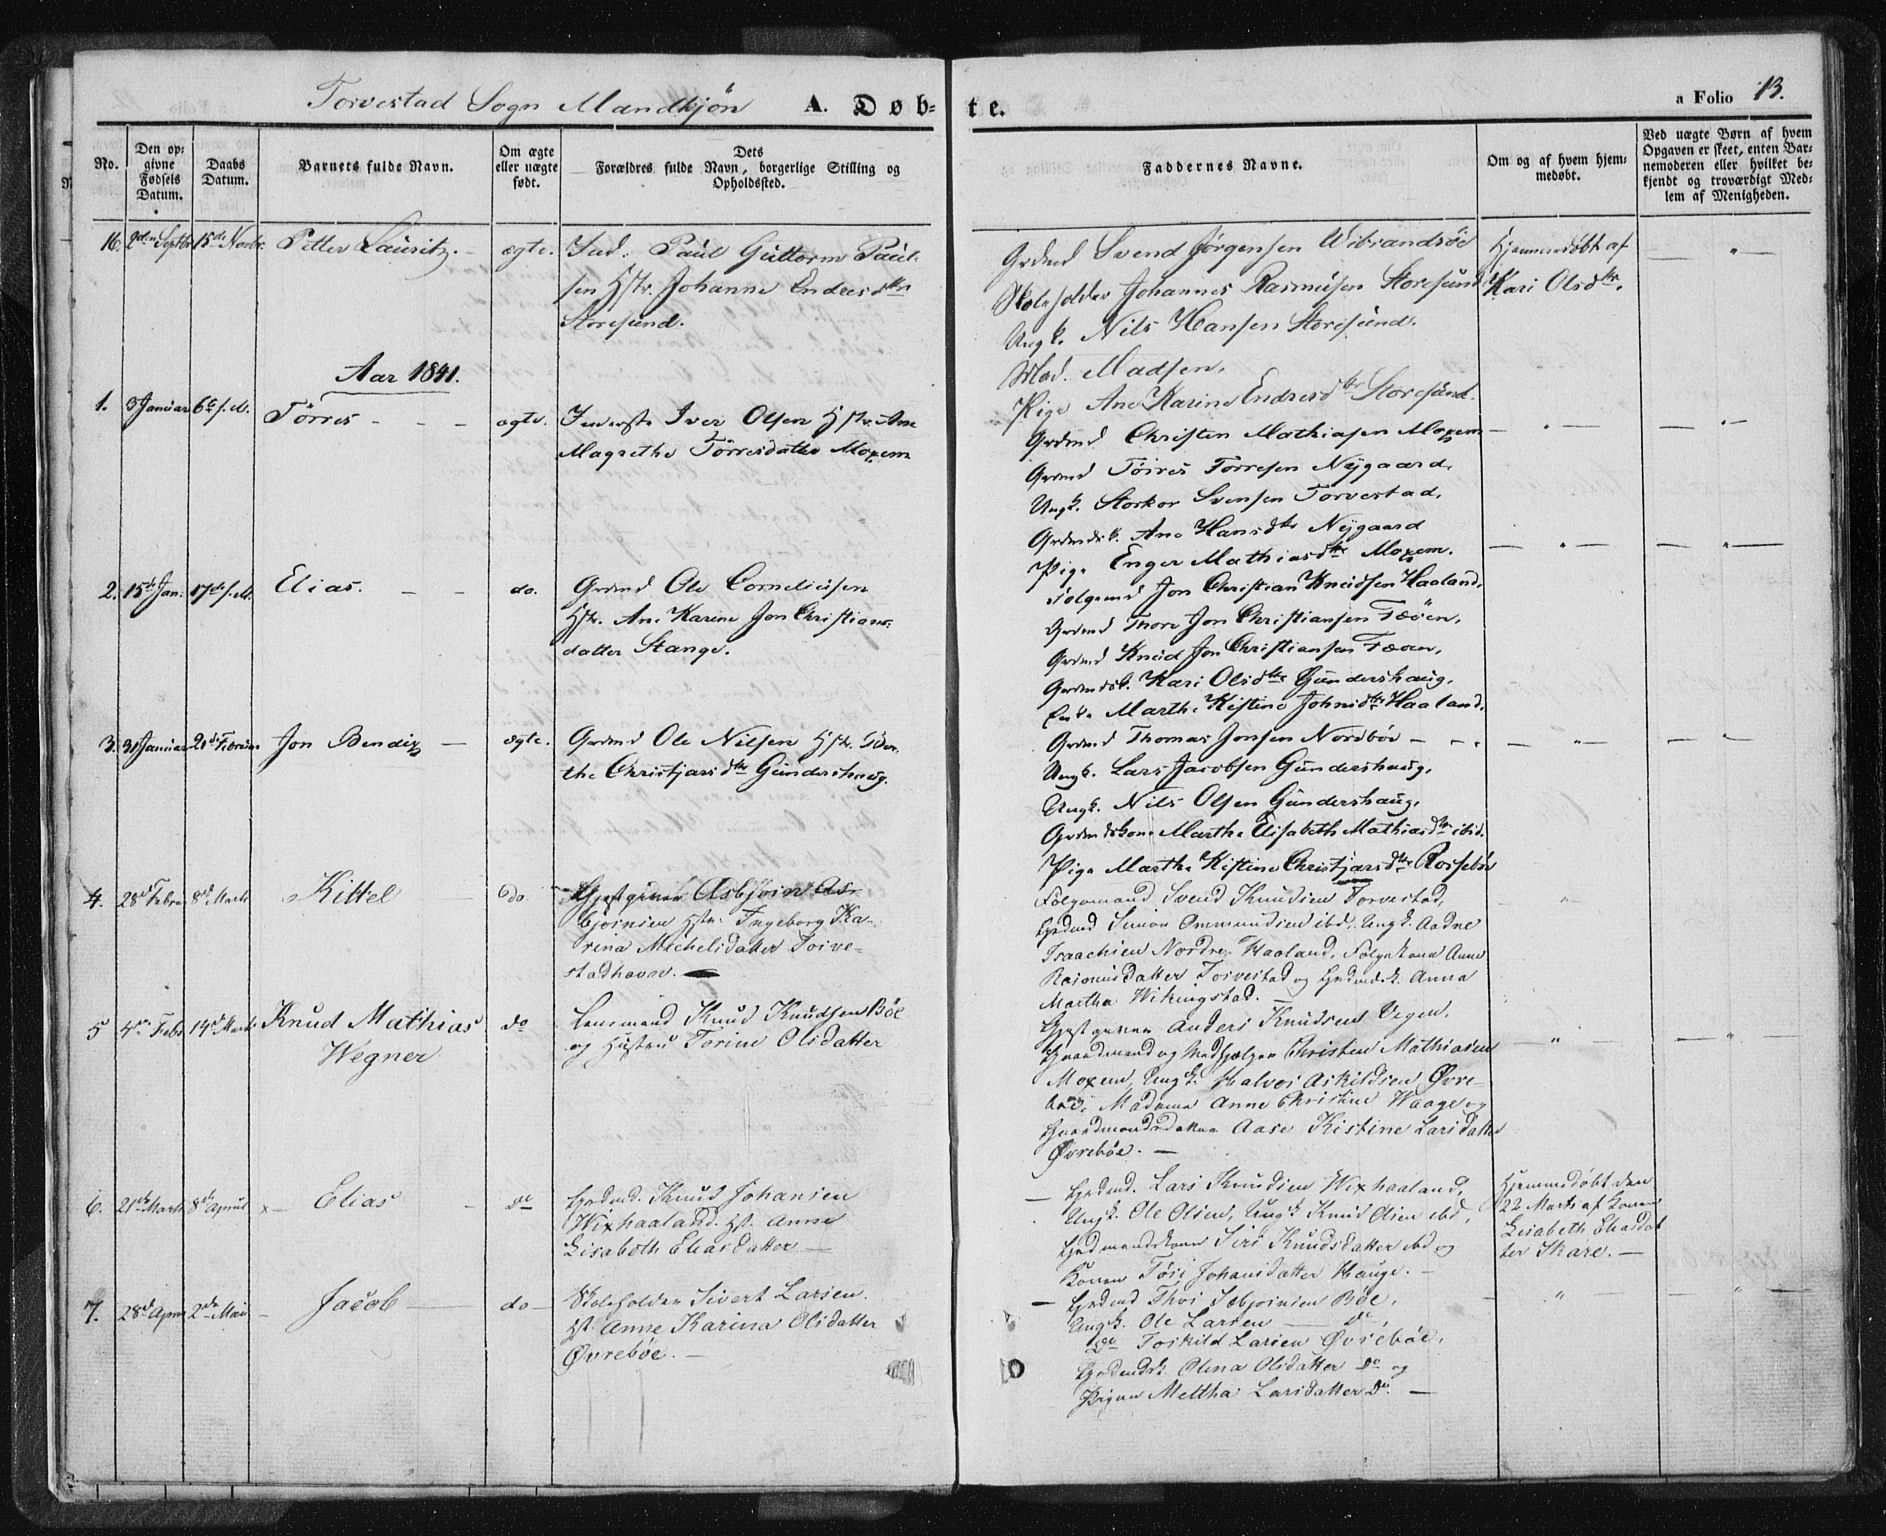 Torvestad Sogn Mandkjön A. Døb-te. a Folio 13.
No.
Den op-
givne
Fødsels
Datum.
Daabs
Datum.
Barnets fulde Navn.
Om ægte
eller uægte
født.
Dets
Forældres fulde Navn, borgerlige Stilling og
Opholdssted.
Faddernes Navne.
Om og af hvem hjem-
medøbt.
Ved uægte Børn af hvem
Opgaven er skeet, enten Bar-
nemoderen eller hvilket be-
kjendt og troværdigt Med-
lem af Menigheden.
16. 2den Septbr 15de Novbr. Petter Lauritz. ægte. Ind. Paul Guttorm Paul-
sen Hstr. Johanne Endresdtr
Storesund.
Grdmd Svend Jörgensen Wibrandsöe
Skoleholder Johannes Rasmusen Storesund
Ungk. Nils Hansen Storesund.
Mad. Madsen.
Pige Ane Karine Endresdtr Storesund.
Hjemmedöbt af
Kari Olsdtr.
Aar 1841.
1. 3 Januar 6te s. M. Törres ægte. Inderste Iver Olsen Hstr. Ane
Magrethe Törresdatter Moxem
Grdmd Christen Mathiasen Moxem
Grdmd Törres Törresen Nygaard.
Ungk. Storkor Svensen Torvestad.
Grdmdsk. Ane Hansdtr Nygaard
Pige Enger Mathiasdtr Moxem.
2. 15de Jan. 17de s. M. Elias. do. Grdmd Ole Corneliusen
Hstr. Ane Karine Jon Christians-
datter Stange.
Folgemd Jon Christian Knudsen Haaland.
Grdmd Thore Jon Christiansen Fæöen.
Grdmd Knud Jon Christiansen Fæöen.
Grdmdsk. Kari Olsdtr Gundershaug.
Marthe Kistine Johnsdtr Haaland.
3. 31 Januar 21de Febru. Jon Bendix ægte. Grdmd Ole Nilsen Hstr. Ber-
the Christjansdtr Gundershaug.
Grdmd Thomas Jonsen Nordböe
Ungk. Lars Jacobsen Gundershaug.
Ungk. Nils Olsen Gundershaug.
Grdmdskone Marthe Elisabeth Mathiasdtr ibid.
Pige Marthe Kistine Christjansdtr Rosseböe
4. 28de Febru 8de Marts Kittel do Gjestgiver Asbjörn As-
björnsen Hstr. Ingeborg Ka-
rina Michelsdatter Torve-
stadhavn.
Folgemand Svend Knudsen Torvestad,
Grdmd Simon Ommundsen ibd. Ungk. Aadne
Isaachsen Nordre Haaland, Folgekone Anne
Rasmusdatter Torvestad og Grdmdsk. Anna
Martha Wikingstad.
5 4de Febr 14de Marts Knud Mathias
Wegner do Lensmand Knud Knudsen Böe
og Hustru Torine Olsdatter
Gjestgiver Anders Knudsen Vegen,
Gaardmand og Medhjælper Christen Mathiasen
Moxem, Ungk. Halvor Askildsen Øvre-
böe, Madame Anne Christine Waage og
Gaardmandsdatter Aase Kistine Larsdatter
Øvreböe.
6. 21de Marts 8de April Elias do Grdmd. Knud Johansen
Wixhaaland. Hst. Anne
Lisabeth Eliasdatter
Grdmd. Lars Knudsen Wixhaaland,
Ungk. Ole Olsen, Ungk. Knud Olsen ibd,
Grdmandskone Siri Knudsdatter ibd og
Konen Töri Johansdatter Hauge.
Hjemmedöbt den
22 Marts af Konen
Lisabeth Eliasdat
ter Skare.
7. 28de April 2de Mai Jacob do Skoleholder Sivert Larsen.
Hst. Anne Karina Olsdatter
Øvreböe.
Grdmd Thor Asbjörnsen Böe,
Ungk. Ole Larsen do
Do Torkild Larsen Øvreböe.
Grdmdsk. Olena Olsdatter Do og
Pigen Meltha Larsdatter Do.